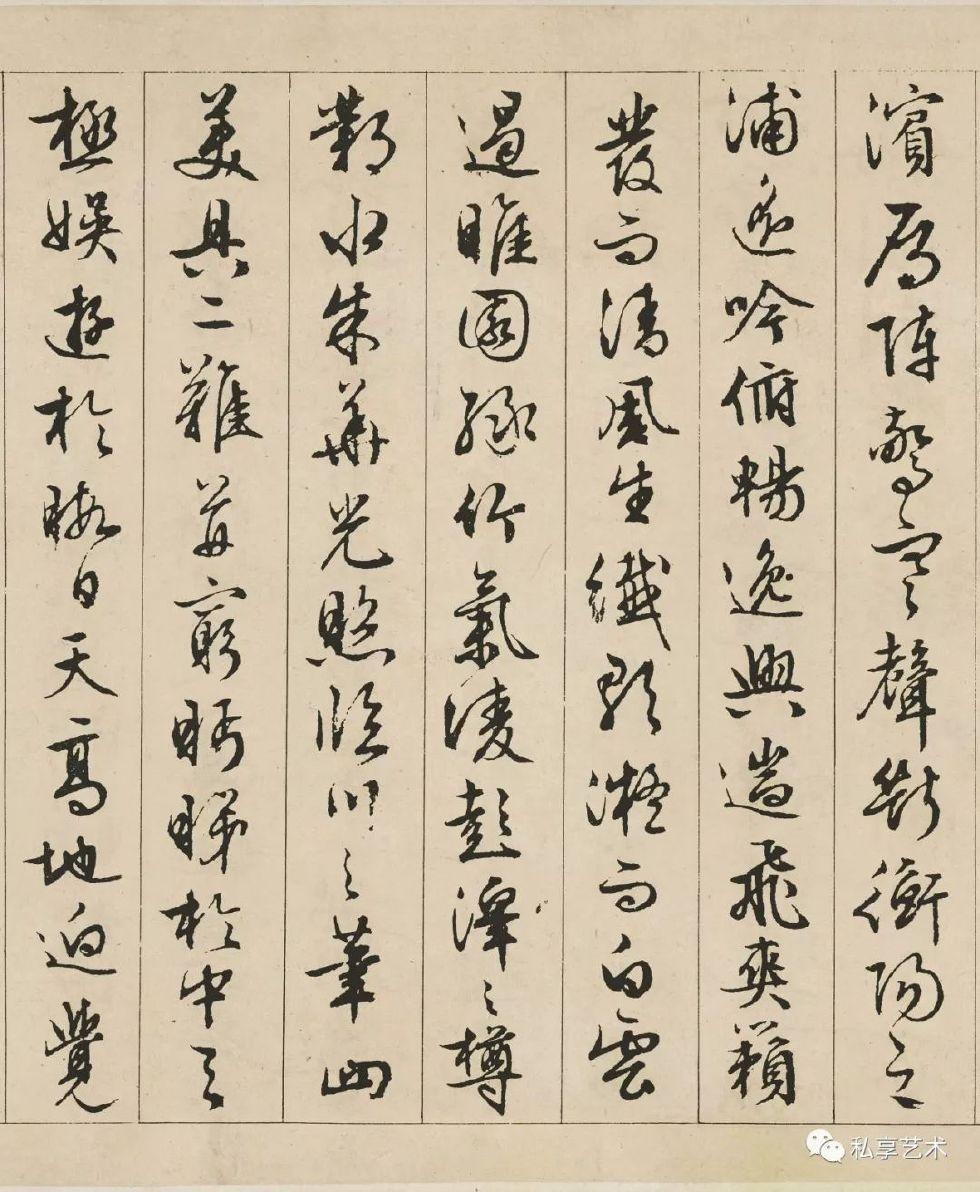 濱鴈陣驚寒聲斷衡陽之
浦遥吟俯暢逸興遄飛爽籟
發而清風生纖歌凝而白雲
遏睢園緑竹氣淩彭澤之樽
鄴水朱華光照臨川之筆四
美具二難并窮眄睇於中天
極娛遊於暇日天高地逈覺
私享艺术